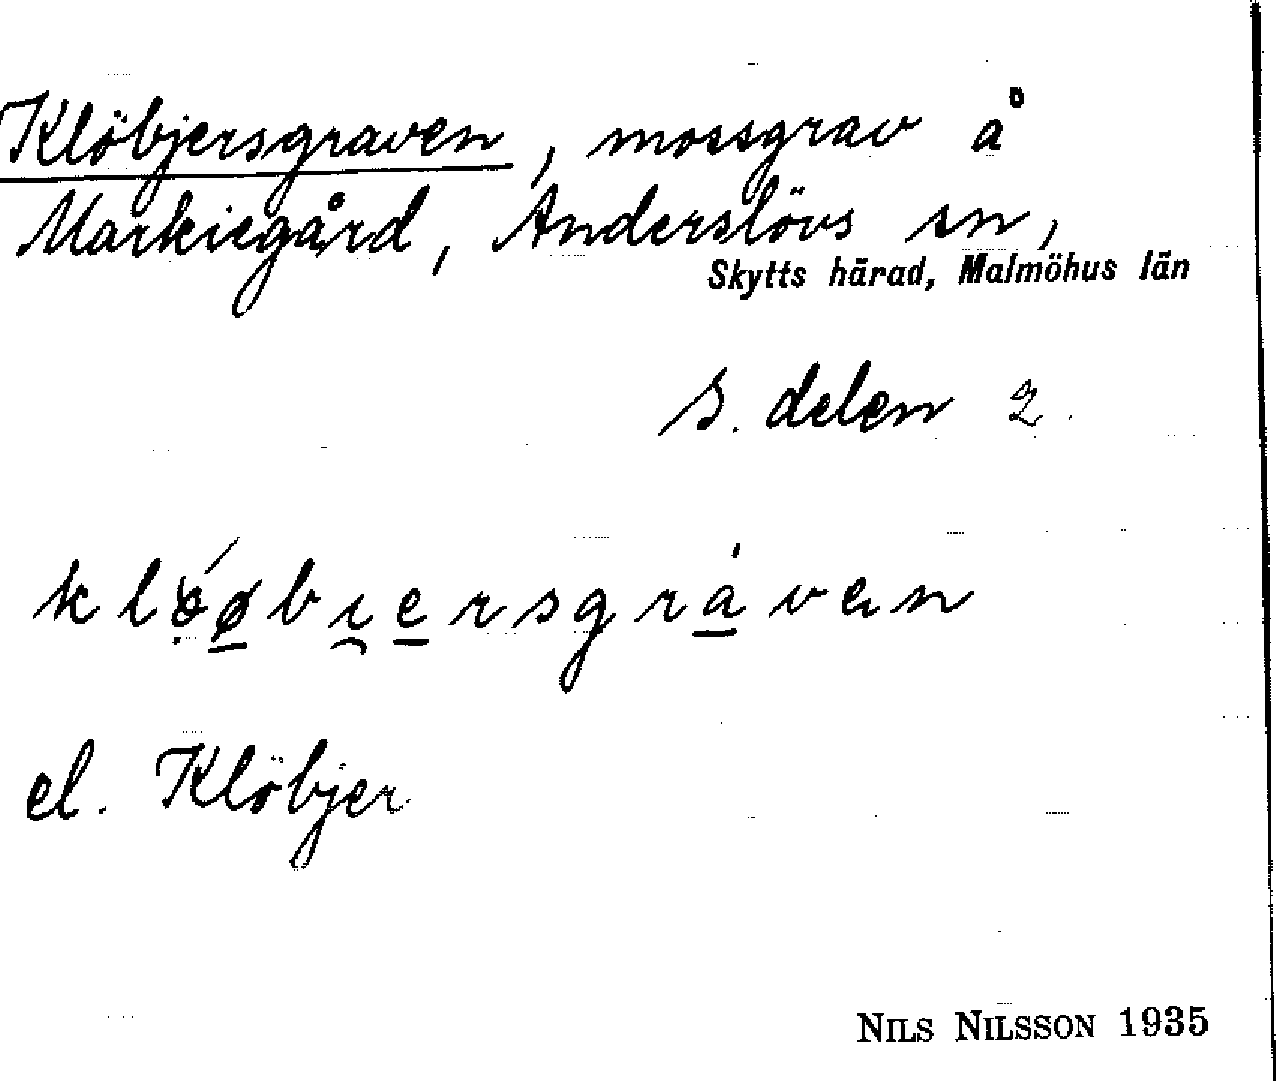 Klöbjersgraven, mossgrav å
Markiegård, Anderslövs sn,
Skytts härad, Malmöhus län
S. delen 2.
el. Klöbjer
NILS NILSSON 1935